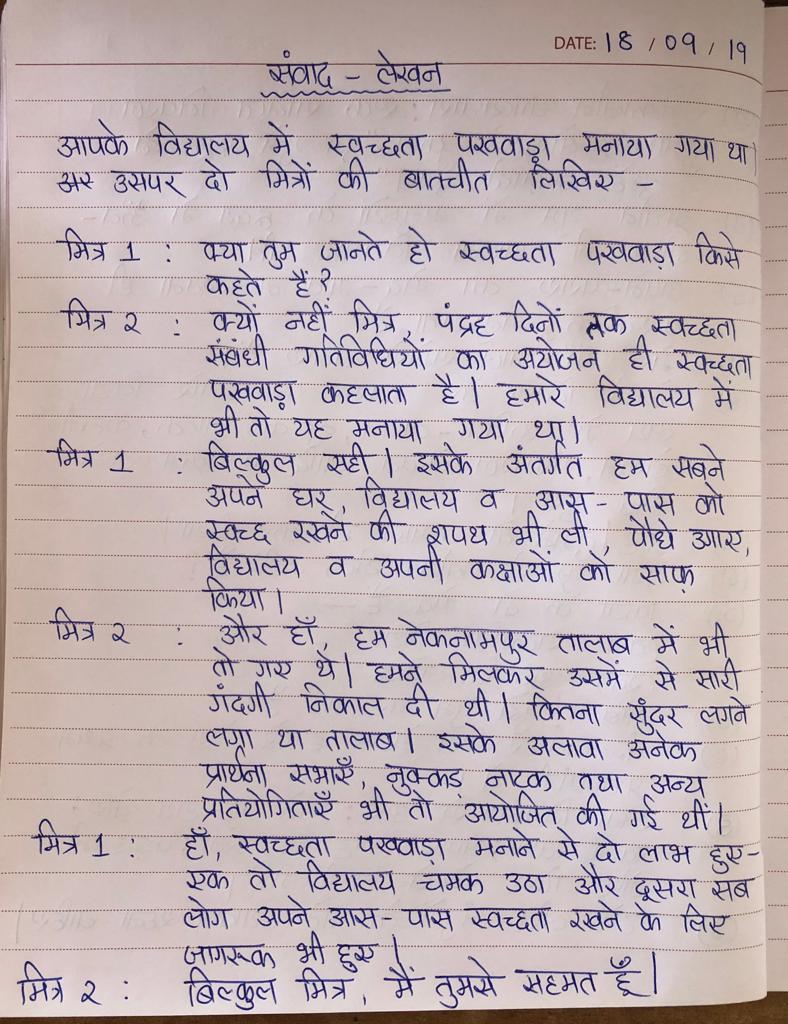 DATE: 18 / 09 / 19
संवाद - लेखन
आपके विद्यालय में स्वच्छता पखवाड़ा मनाया गया था।
उसपर दो मित्रों की बातचीत लिखिए -
मित्र 1 : क्या तुम जानते हो स्वच्छता पखवाड़ा किसे
कहते हैं?
मित्र २ : क्यों नहीं मित्र, पंद्रह दिनों तक स्वच्छता
संबंधी गतिविधियों का अयोजन ही स्वच्छता
पखवाड़ा कहलाता है। हमारे विद्यालय में
भी तो यह मनाया गया था।
मित्र 1 : बिल्कुल सही। इसके अंतर्गत हम सबने
अपने घर, विद्यालय व आस-पास को
स्वच्छ रखने की शपथ भी ली, पौधे उगाए,
विद्यालय व अपनी कक्षाओं को साफ़
किया।
मित्र २ : और हाँ, हम नेकनामपुर तालाब में भी
तो गए थे। हमने मिलकर उसमें से सारी
गंदगी निकाल दी थी। कितना सुंदर लगने
लगा था तालाब। इसके अलावा अनेक
प्रार्थना सभाएँ, नुक्कड़ नाटक तथा अन्य
प्रतियोगिताएँ भी तो आयोजित की गई थीं।
मित्र 1 : हाँ, स्वच्छता पखवाड़ा मनाने से दो लाभ हुए-
एक तो विद्यालय चमक उठा और दूसरा सब
लोग अपने आस-पास स्वच्छता रखने के लिए
जागरूक भी हुए।
मित्र २ : बिल्कुल मित्र, मैं तुमसे सहमत हूँ।